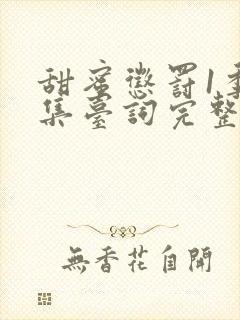 甜蜜懲罰1季
集臺詞完整
無香花自開